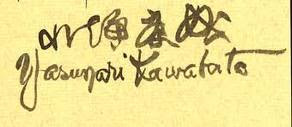 川端康成
Yasunari Kawabata